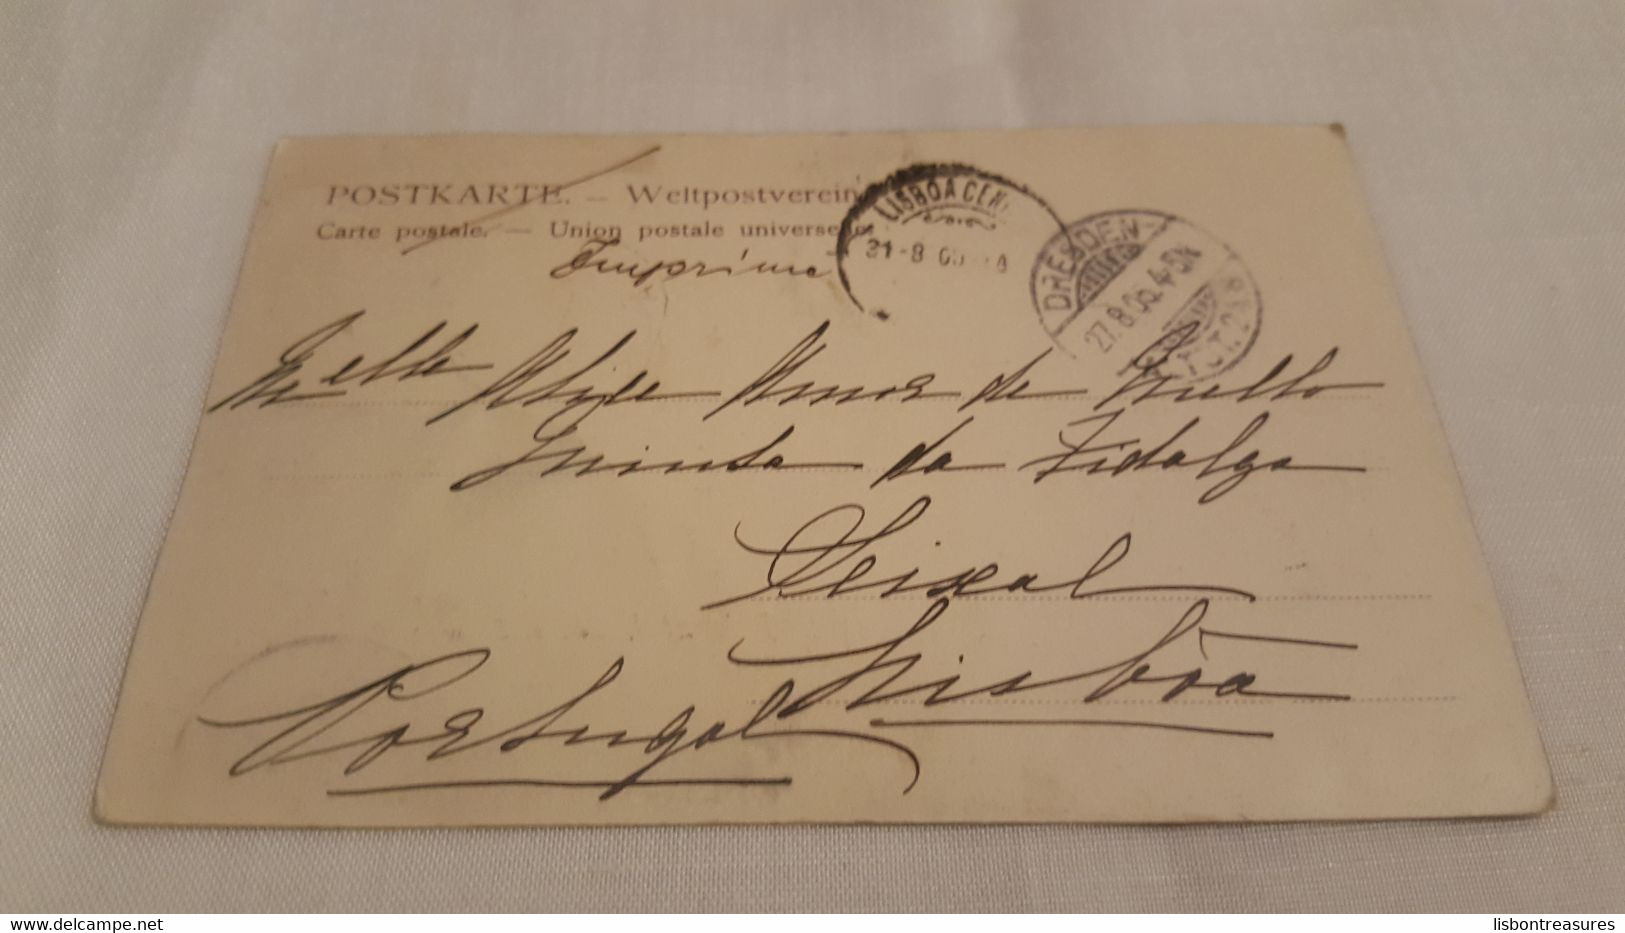 POSTKARTE. — Weltpostverein
Carte postale. — Union postale universelle.
Imprimé
LISBOA CEN
31-8 0
DRESDEN-
27.8.06.4-5N
Melle Alice Amor de Mello
Quinta da Fidalga
Seixal
Lisbôa
Portugal
delcampe.net
lisbontreasures